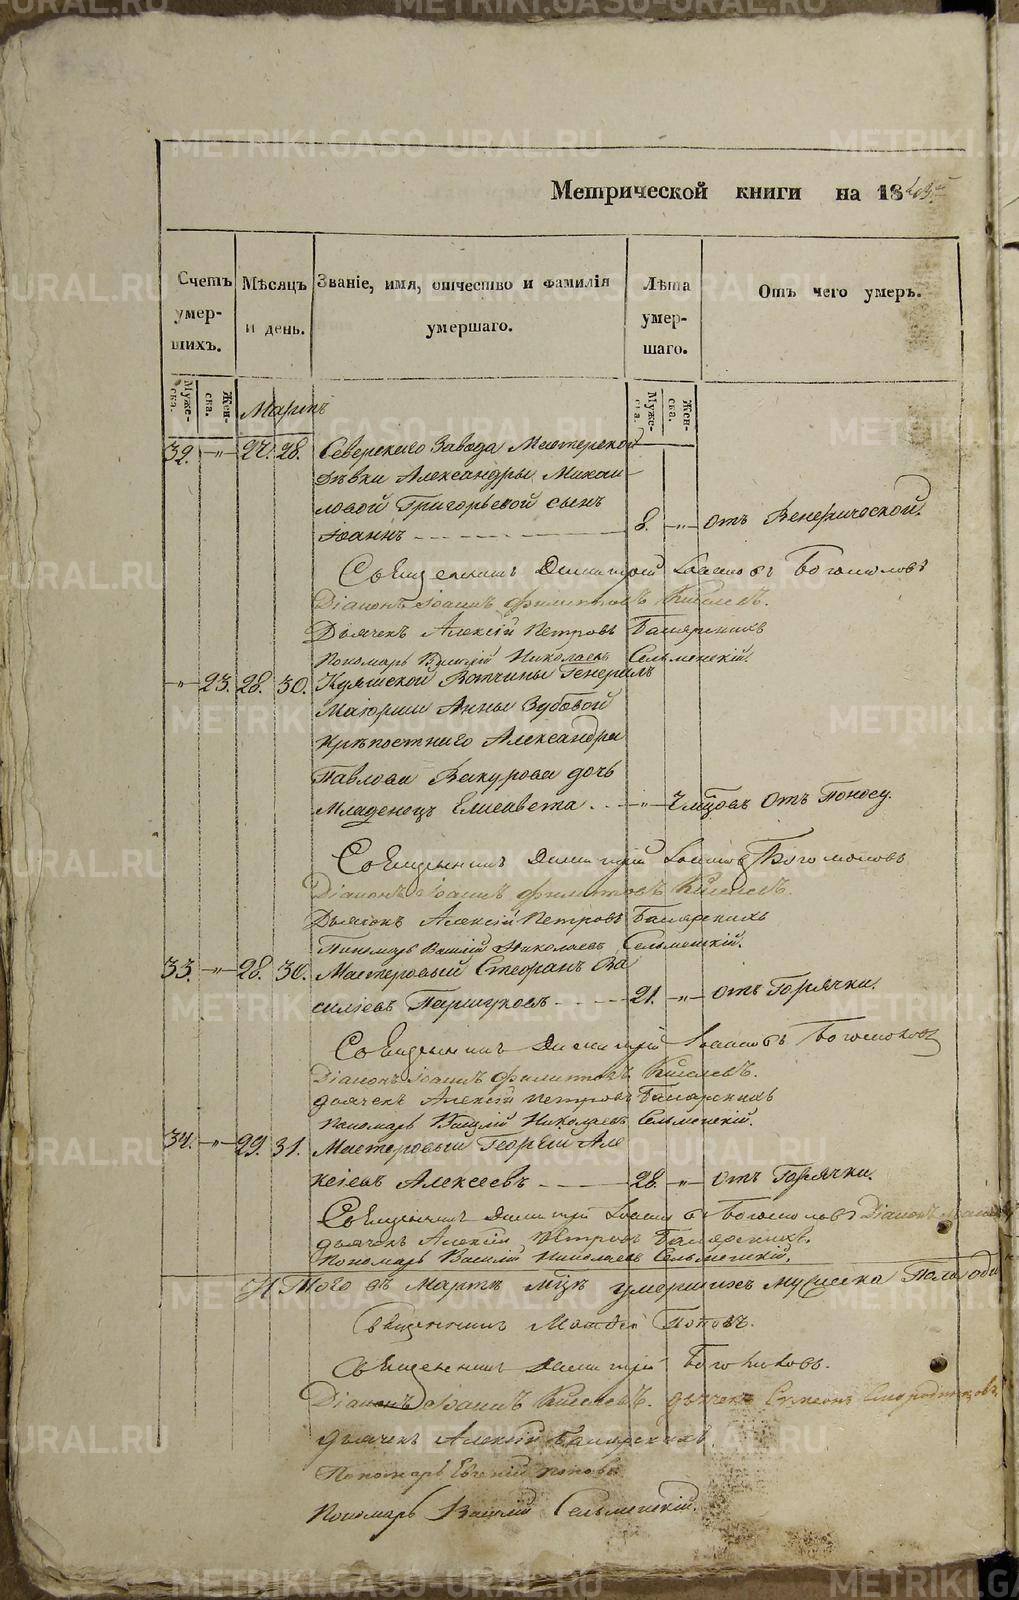 METRIKI.GASO-URAL.RU
Метрической книги на 18
Счетъ умер-шихъ.
Мѣсяцъ и день.
Званіе, имя, отчество и фамилія умершаго.
Лѣта умер-шаго.
Отъ чего умеръ.
Муже-ска.
Жен-ска.
Мартъ
Муже-ска.
Жен-ска.
32. -"- 27. 28. Северскаго Завода Мастерской
дѣвки Александры Михаи-
ловой Григорьевой сынъ
Іоаннъ 8. -"- отъ Венерической.
Священникъ Димитрій Богомоловъ
Діаконъ Іоаннъ Филиповъ Киселевъ.
Дьячекъ Алексій Петровъ Бацярскихъ
Пономарь Василій Николаевъ Сельменскій.
-"- 23. 28. 30. Куяшской Вотчины Генералъ
Маіорши Анны Зубовой
Крѣпостнаго Александра
Павлова Вакурова дочь
Младенецъ Елисавета -"- отъ Поносу.
Священникъ Димитрій Богомоловъ
Діаконъ Іоаннъ Филиповъ Киселевъ.
Дьячекъ Алексій Петровъ Бацярскихъ
Пономарь Василій Николаевъ Сельменскій.
33. -"- 28. 30. Мастеровый Стефанъ Ва
силіевъ Паршуковъ 21. -"- отъ Горячки.
Священникъ Димитрій Богомоловъ
Діаконъ Іоаннъ Филиповъ Киселевъ.
дьячекъ Алексій Петровъ Бацярскихъ
Пономарь Василій Николаевъ Сельменскій.
34. -"- 29. 31. Мастеровый Георгій Але
ксіевъ Алексеевъ 28. -"- отъ Горячки.
Священникъ Димитрій Богомоловъ Діаконъ
дьячекъ Алексій Петровъ Бацярскихъ.
Пономарь Василій Николаевъ Сельменскій.
Итого въ Мартѣ мцѣ умершихъ мужеска пола
Священникъ Матвей Поповъ.
Священникъ Димитрій Богомоловъ.
Діаконъ Іоаннъ Киселевъ. дьячекъ Симеонъ Смородинцовъ
дьячекъ Алексій Бацярскихъ.
Пономарь Евгеній Поповъ
Пономарь Василій Сельменскій.